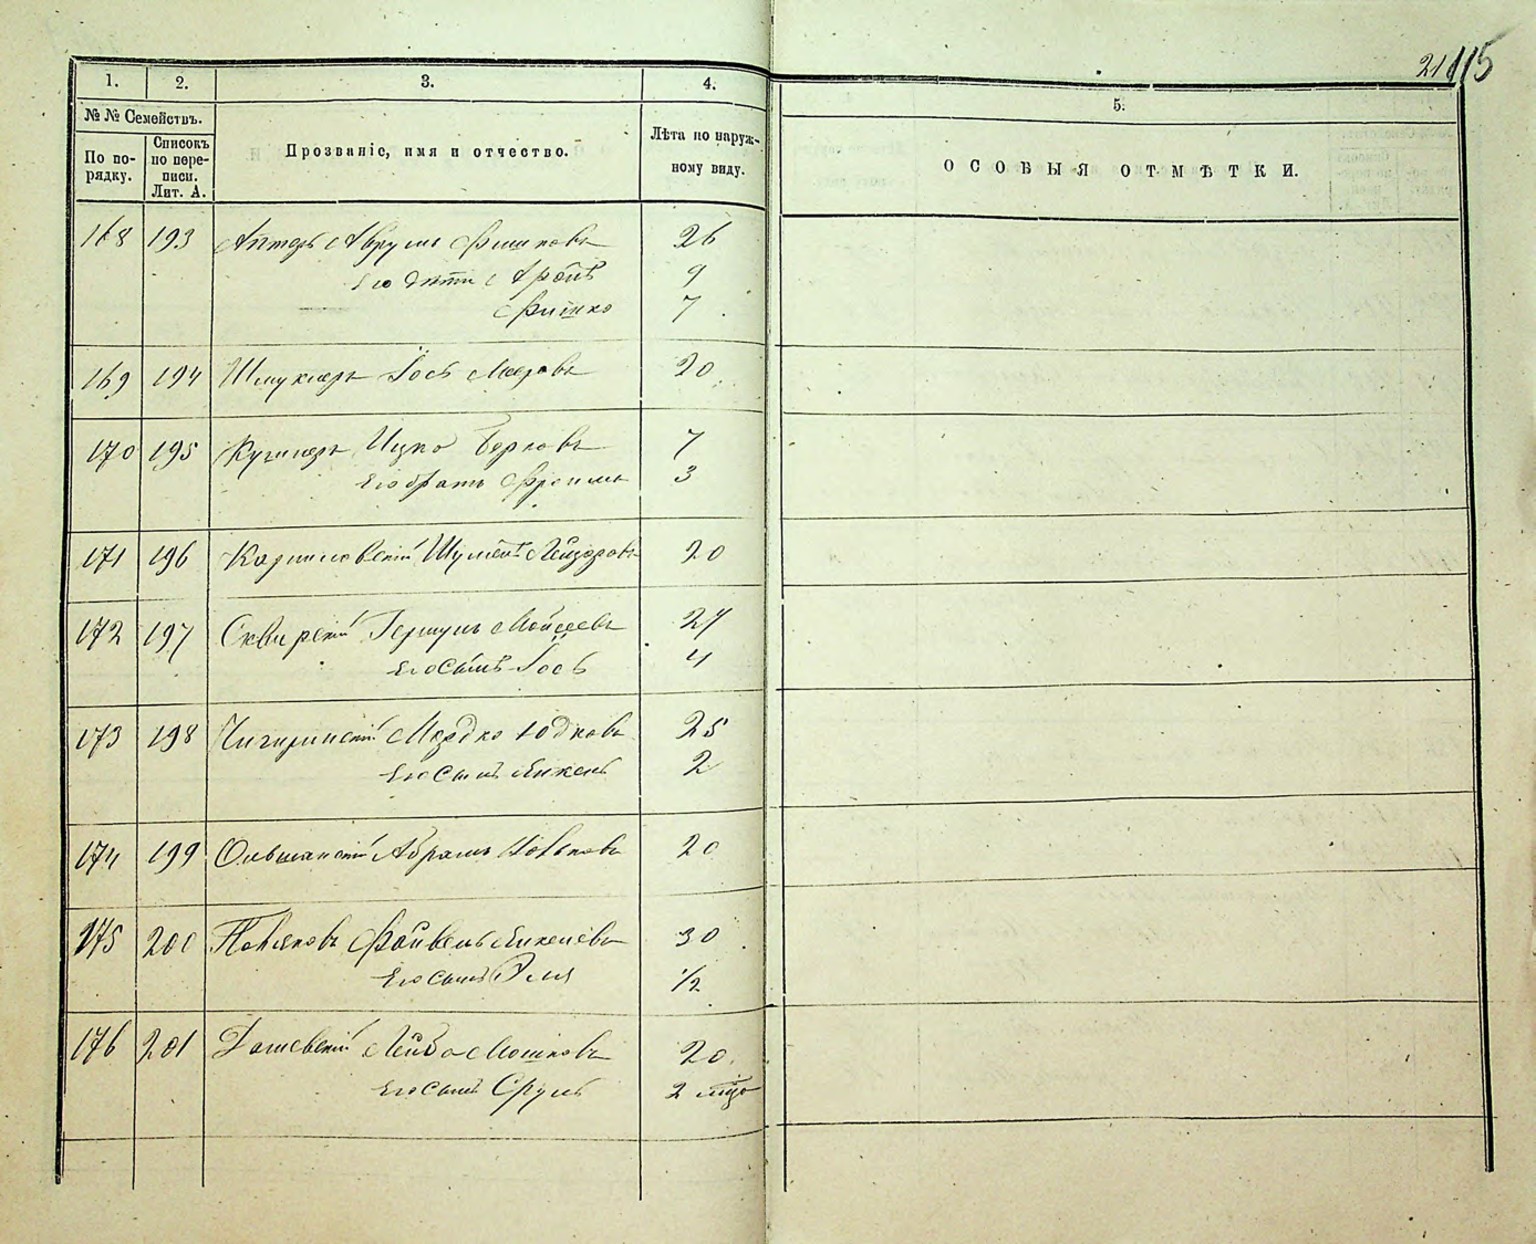 21 115
1. 2. 3. 4. 5.
№ № Семействъ.
По порядку.
Списокъ по переписи. Лит. А.
Прозваніе, имя и отчество.
Лѣта по наружному виду.
ОСОБЫЯ ОТМѢТКИ.
168 193 Аптеръ Аврумъ Фишковъ 26
Его дѣти Аронъ 9
Фишко 7
169 194 Шмуклеръ Іось Мееровъ 20
170 195 Кушнеръ Ицко Берковъ 7
Его братъ Фроимъ 3
171 196 Шулимъ Лейзеровъ 20
172 197 Сквирскій Гершунъ Мойсеевъ 27
Его сынъ Іось 4
173 198 Чигиринскій Мордко Юдковъ 25
Его сынъ Янкель 2
174 199 Ольшанскій Абрамъ 20
175 200 Файвель Янкелевъ 30
Его сынъ Эля 1/2
176 201 Дашевскій Лейба Мошковъ 20
Его сынъ Сруль 2